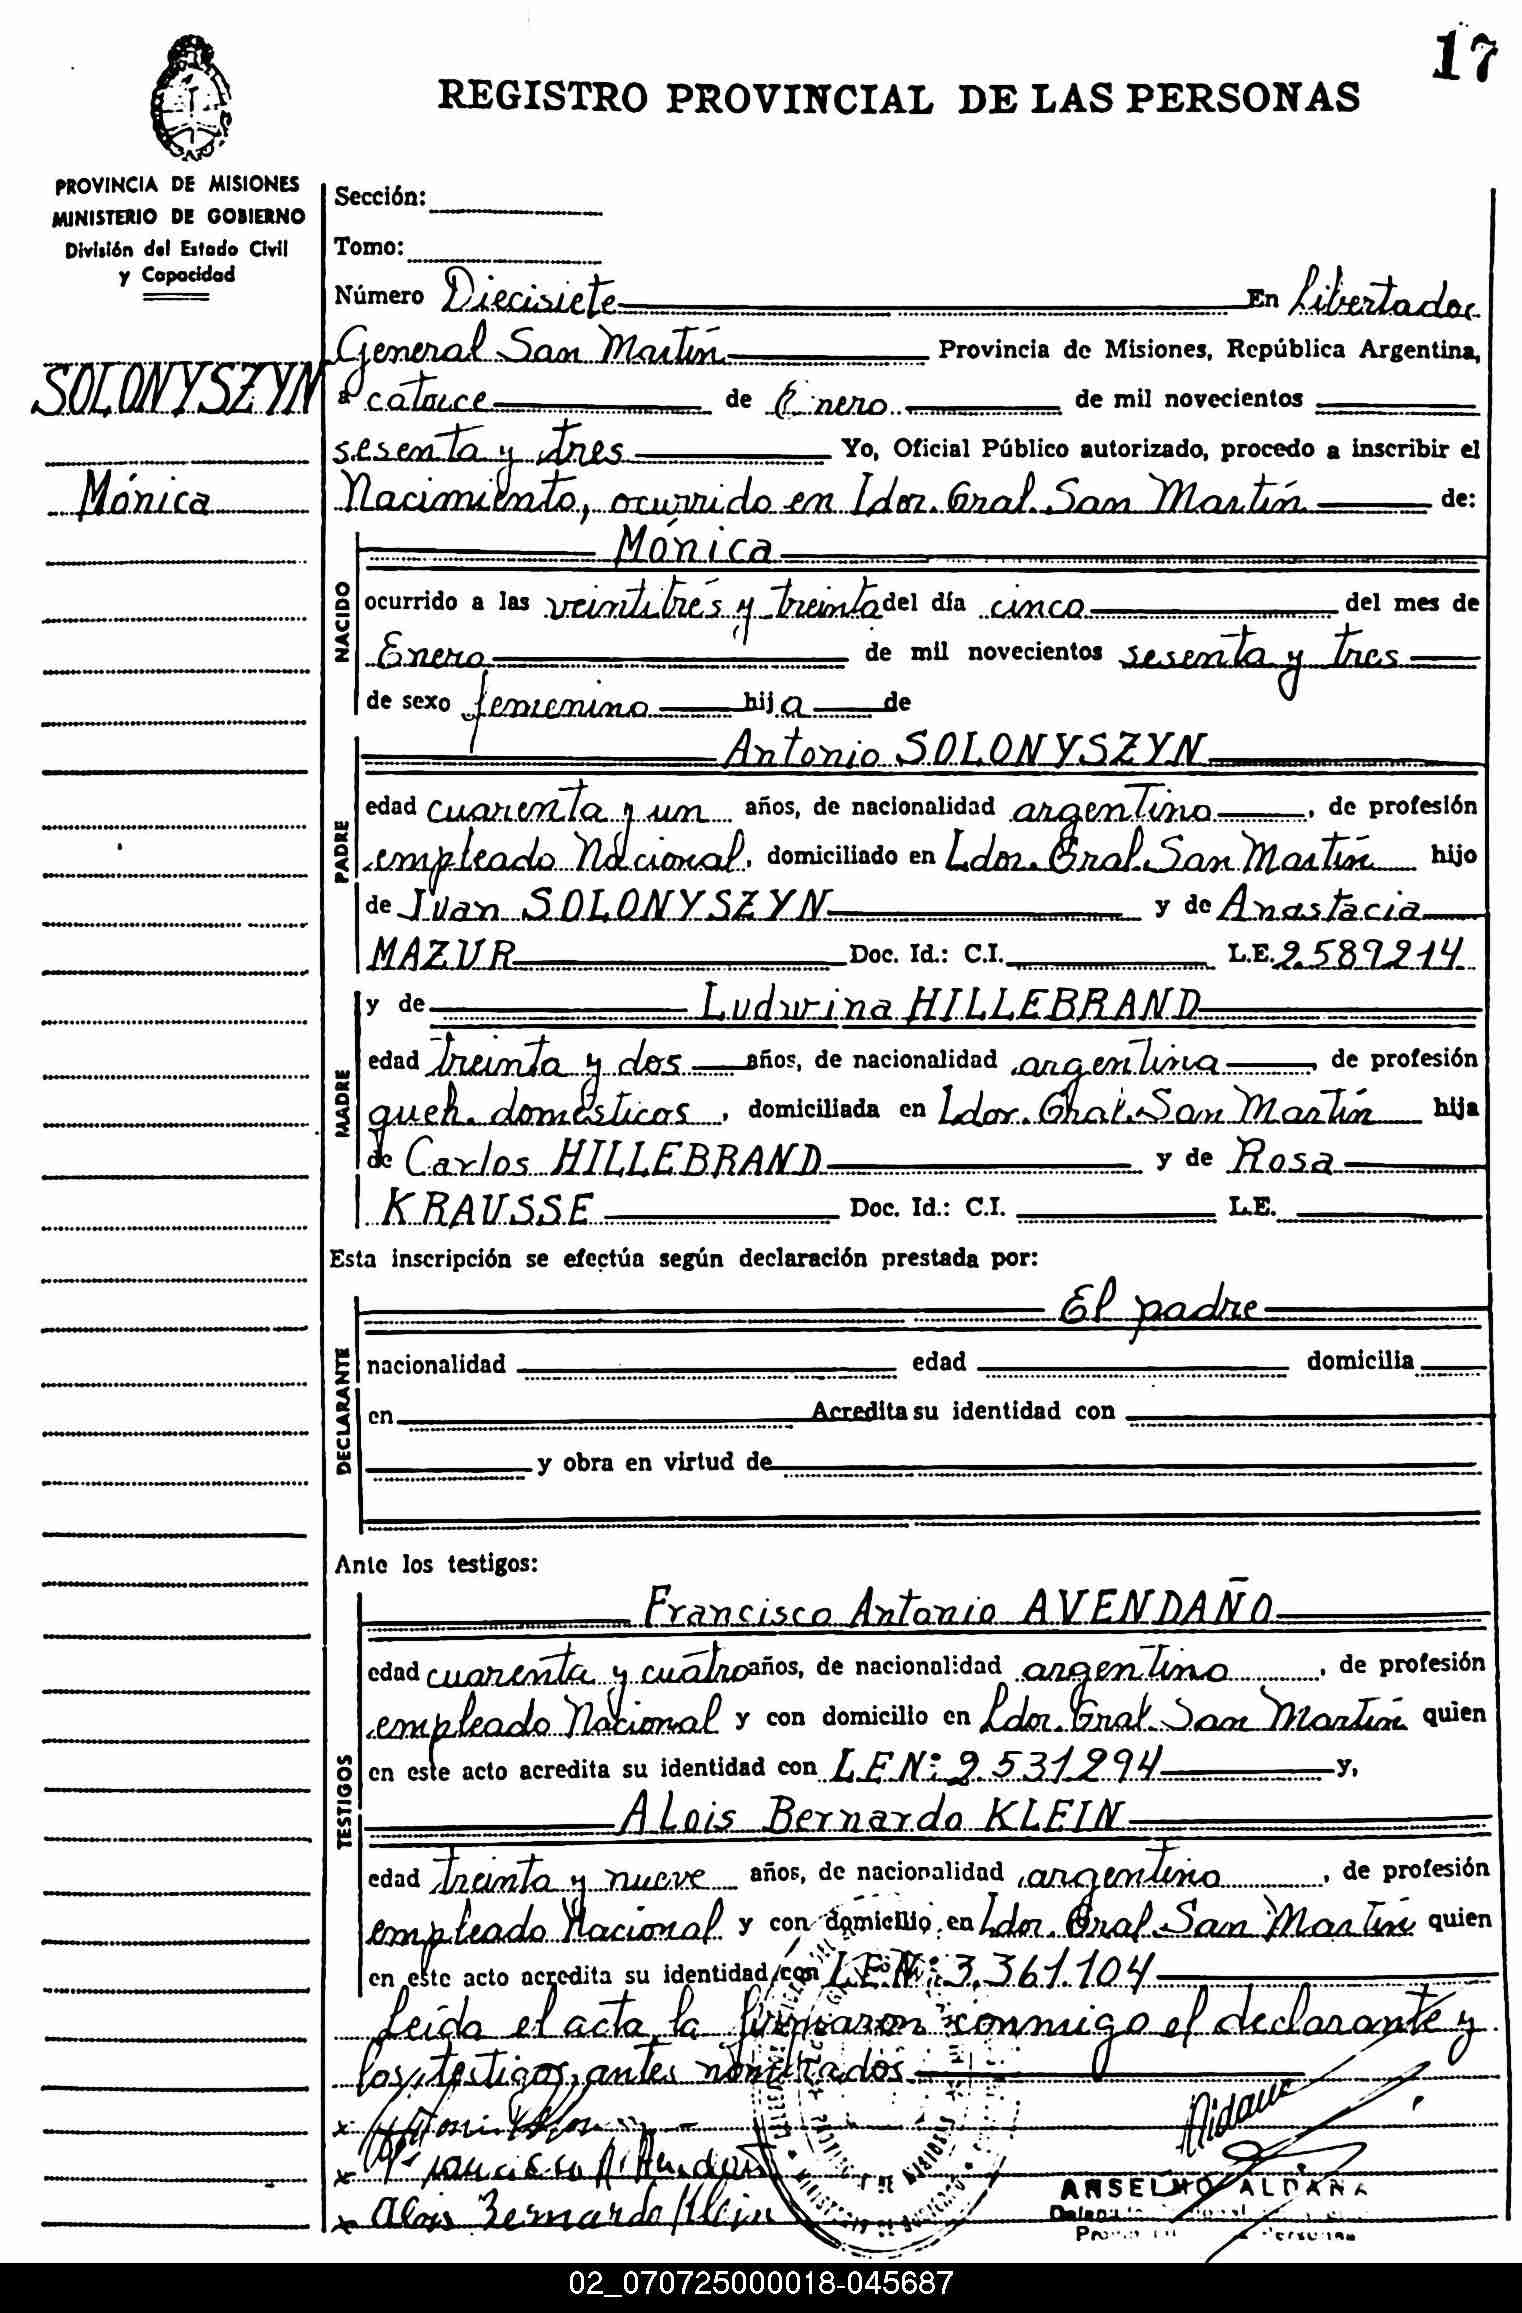 17
REGISTRO PROVINCIAL DE LAS PERSONAS
PROVINCIA DE MISIONES
MINISTERIO DE GOBIERNO
División del Estado Civil
y Capacidad
SOLONYSZYN
Mónica
Sección:
Tomo:
Número Diecisiete En Libertador
General San Martín Provincia de Misiones, República Argentina,
a catorce de Enero de mil novecientos
sesenta y tres Yo, Oficial Público autorizado, procedo a inscribir el
Nacimiento, ocurrido en Ldor. Gral. San Martín de:
NACIDO
Mónica
ocurrido a las veintitrés y treinta del día cinco del mes de
Enero de mil novecientos sesenta y tres
de sexo femenino hija de
PADRE
Antonio SOLONYSZYN
edad cuarenta y un años, de nacionalidad argentino, de profesión
empleado Nacional, domiciliado en Ldor. Gral. San Martín hijo
de Juan SOLONYSZYN y de Anastacia
MAZUR Doc. Id.: C.I. L.E. 2.589214
MADRE
y de Ludwina HILLEBRAND
edad treinta y dos años, de nacionalidad argentina, de profesión
queh. domésticos, domiciliada en Ldor. Gral. San Martín hija
de Carlos HILLEBRAND y de Rosa
KRAUSSE Doc. Id.: C.I. L.E.
Esta inscripción se efectúa según declaración prestada por:
DECLARANTE
El padre
nacionalidad edad domicilia
en Acredita su identidad con
y obra en virtud de
Ante los testigos:
TESTIGOS
Francisco Antonio AVENDAÑO
edad cuarenta y cuatro años, de nacionalidad argentino, de profesión
empleado Nacional y con domicilio en Ldor. Gral. San Martín quien
en este acto acredita su identidad con L.E.N: 2.531.294 y,
Alois Bernardo KLEIN
edad treinta y nueve años, de nacionalidad argentino, de profesión
empleado Nacional y con domicilio en Ldor. Gral San Martín quien
en este acto acredita su identidad con L.E.N: 3.361.104
Leída el acta, la firmaron conmigo el declarante y
los testigos antes nombrados
x
x Francisco A. Avendaño
x Alois Bernardo Klein
ANSELMO ALDANA
02_070725000018-045687